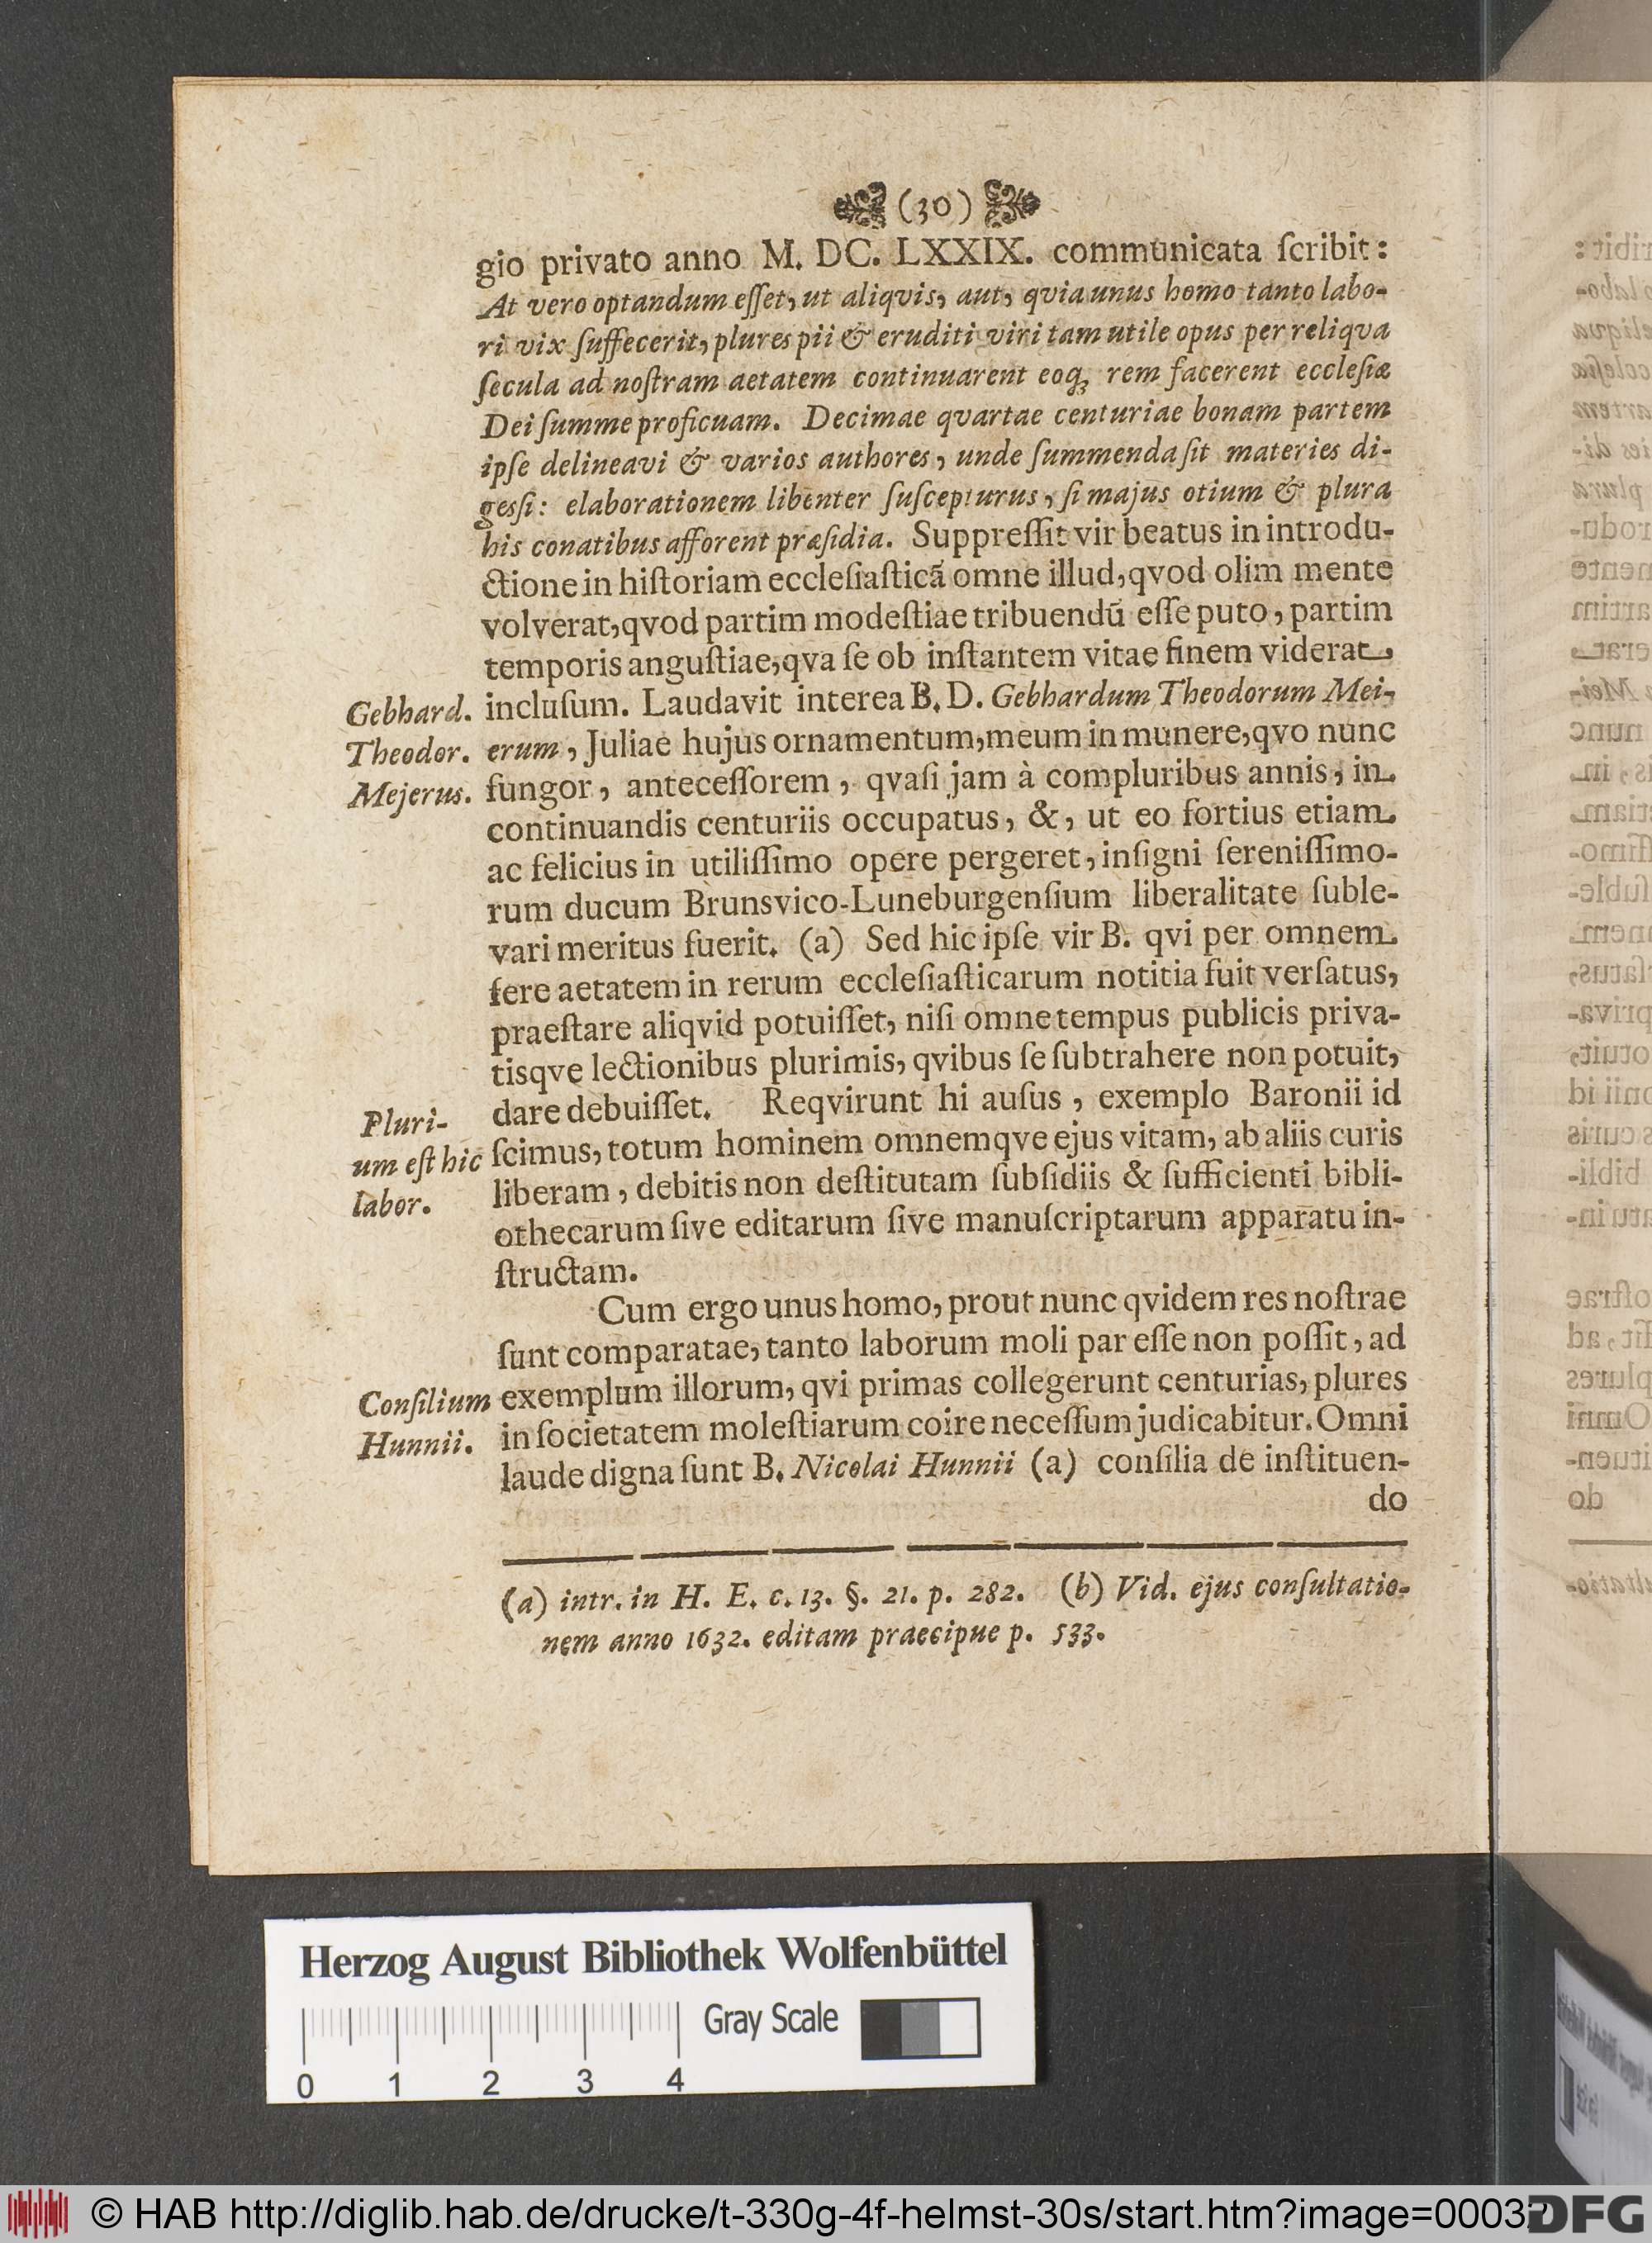 (30)
gio privato anno M. DC. LXXIX. communicata ſcribit:
At vero optandum eſſet, ut aliqvis, aut, qvia unus homo tanto labo-
ri vix ſuffecerit, plures pii & eruditi viri tam utile opus per reliqva
ſecula ad noſtram aetatem continuarent eoq; rem facerent eccleſiæ
Dei ſumme proficuam. Decimae qvartae centuriae bonam partem
ipſe delineavi & varios authores, unde ſummenda ſit materies di-
gesſi: elaborationem libenter ſuſcepturus, ſi majus otium & plura
his conatibus afforent præſidia. Suppreſſit vir beatus in introdu-
ctione in hiſtoriam eccleſiaſticã omne illud, qvod olim mente
volverat, qvod partim modeſtiae tribuendũ eſſe puto, partim
temporis anguſtiae, qva ſe ob inſtantem vitae finem viderat,
Gebhard. Theodor. Mejerus.
incluſum. Laudavit interea B. D. Gebhardum Theodorum Mei-
erum, Juliae hujus ornamentum, meum in munere, qvo nunc
fungor, anteceſſorem, qvaſi jam à compluribus annis, in
continuandis centuriis occupatus, &, ut eo fortius etiam
ac felicius in utiliſſimo opere pergeret, inſigni ſereniſſimo-
rum ducum Brunsvico-Luneburgenſium liberalitate ſuble-
vari meritus fuerit. (a) Sed hic ipſe vir B. qvi per omnem
fere aetatem in rerum eccleſiaſticarum notitia fuit verſatus,
praeſtare aliqvid potuiſſet, niſi omne tempus publicis priva-
tisqve lectionibus plurimis, qvibus ſe ſubtrahere non potuit,
Pluri-
um eſt hic
labor.
dare debuiſſet. Reqvirunt hi auſus, exemplo Baronii id
ſcimus, totum hominem omnemqve ejus vitam, ab aliis curis
liberam, debitis non deſtitutam ſubſidiis & ſufficienti bibli-
othecarum ſive editarum ſive manuſcriptarum apparatu in-
ſtructam.
Cum ergo unus homo, prout nunc qvidem res noſtrae
ſunt comparatae, tanto laborum moli par eſſe non poſſit, ad
Conſilium
Hunnii.
exemplum illorum, qvi primas collegerunt centurias, plures
in ſocietatem moleſtiarum coire neceſſum judicabitur. Omni
laude digna ſunt B. Nicolai Hunnii (a) conſilia de inſtituen-
do
(a) intr. in H. E. c. 13. §. 21. p. 282. (b) Vid. ejus conſultatio-
nem anno 1632. editam praecipue p. 533.
Herzog August Bibliothek Wolfenbüttel
Gray Scale
0 1 2 3 4
© HAB http://diglib.hab.de/drucke/t-330g-4f-helmst-30s/start.htm?image=00032
DFG